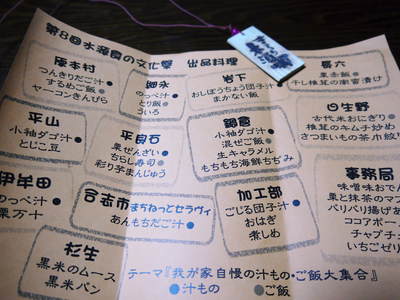 第8回水源食の文化祭 出品料理
原本村
つんきりだご汁●
するめご飯●
ヤーコンきんぴら
御永
のっぺ汁●
とり飯●
ういろ
岩下
おしぼうちょう団子汁●
まかない飯●
長六
栗赤飯●
干し椎茸の南蛮漬け
平山
小袖ダゴ汁●
とじこ豆
平良石
栗ぜんざい●
ちらし寿司●
彩り芋まんじゅう
鍋倉
小袖ダゴ汁●
混ぜご飯●
生キャラメル
もちもち海鮮ちぢみ
日生野
古代米おにぎり●
椎茸のキムチ炒め
さつまいもの茶巾絞り
伊牟田
のっぺ汁●
栗万十
合志市まちねっとセラヴィ
あんもちだご汁●
加工部
こじる団子汁●
おはぎ
煮しめ
事務局
味噌味おでん
栗と抹茶のマフ
バリバリ揚げあ
ココアボー
チャプチ
いちごゼリ
杉生
黒米のムース
黒米パン
テーマ『我が家自慢の汁もの・ご飯大集合』
●汁もの ●ご飯